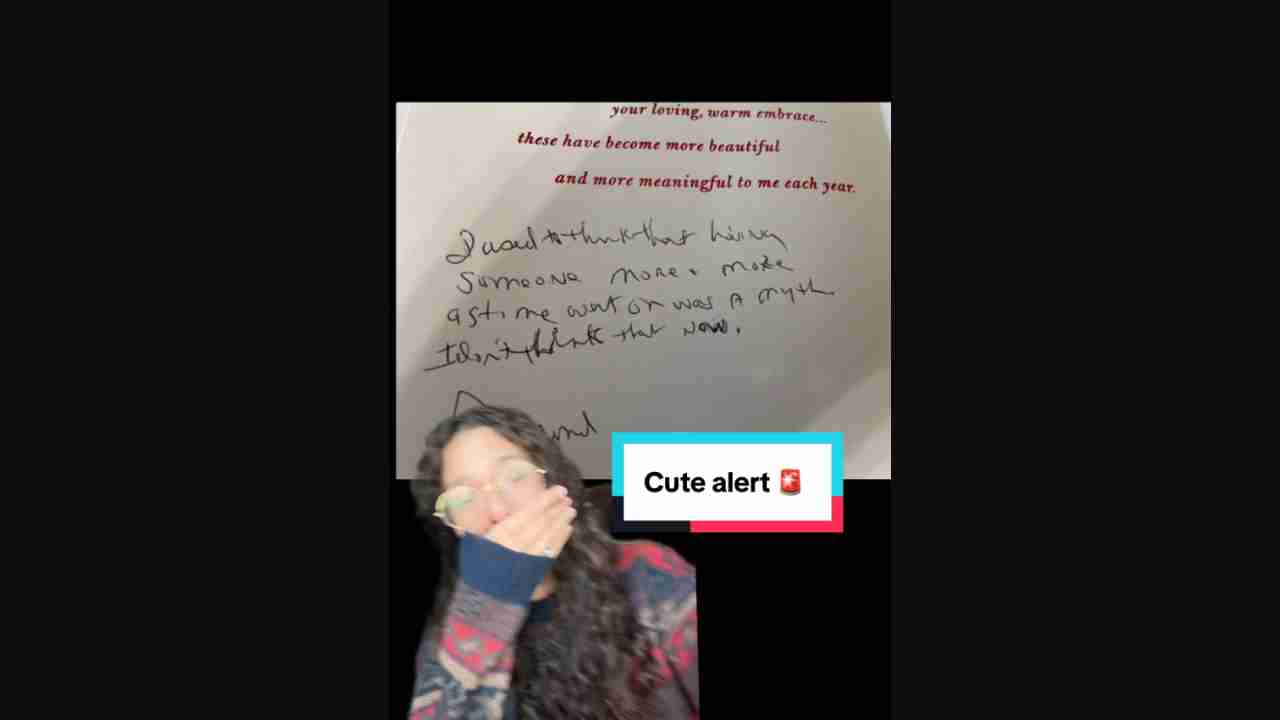 your loving, warm embrace...
these have become more beautiful
and more meaningful to me each year.
I used to think that loving
someone more + more
as time went on was a myth
I don't think that now.
Cute alert 🚨